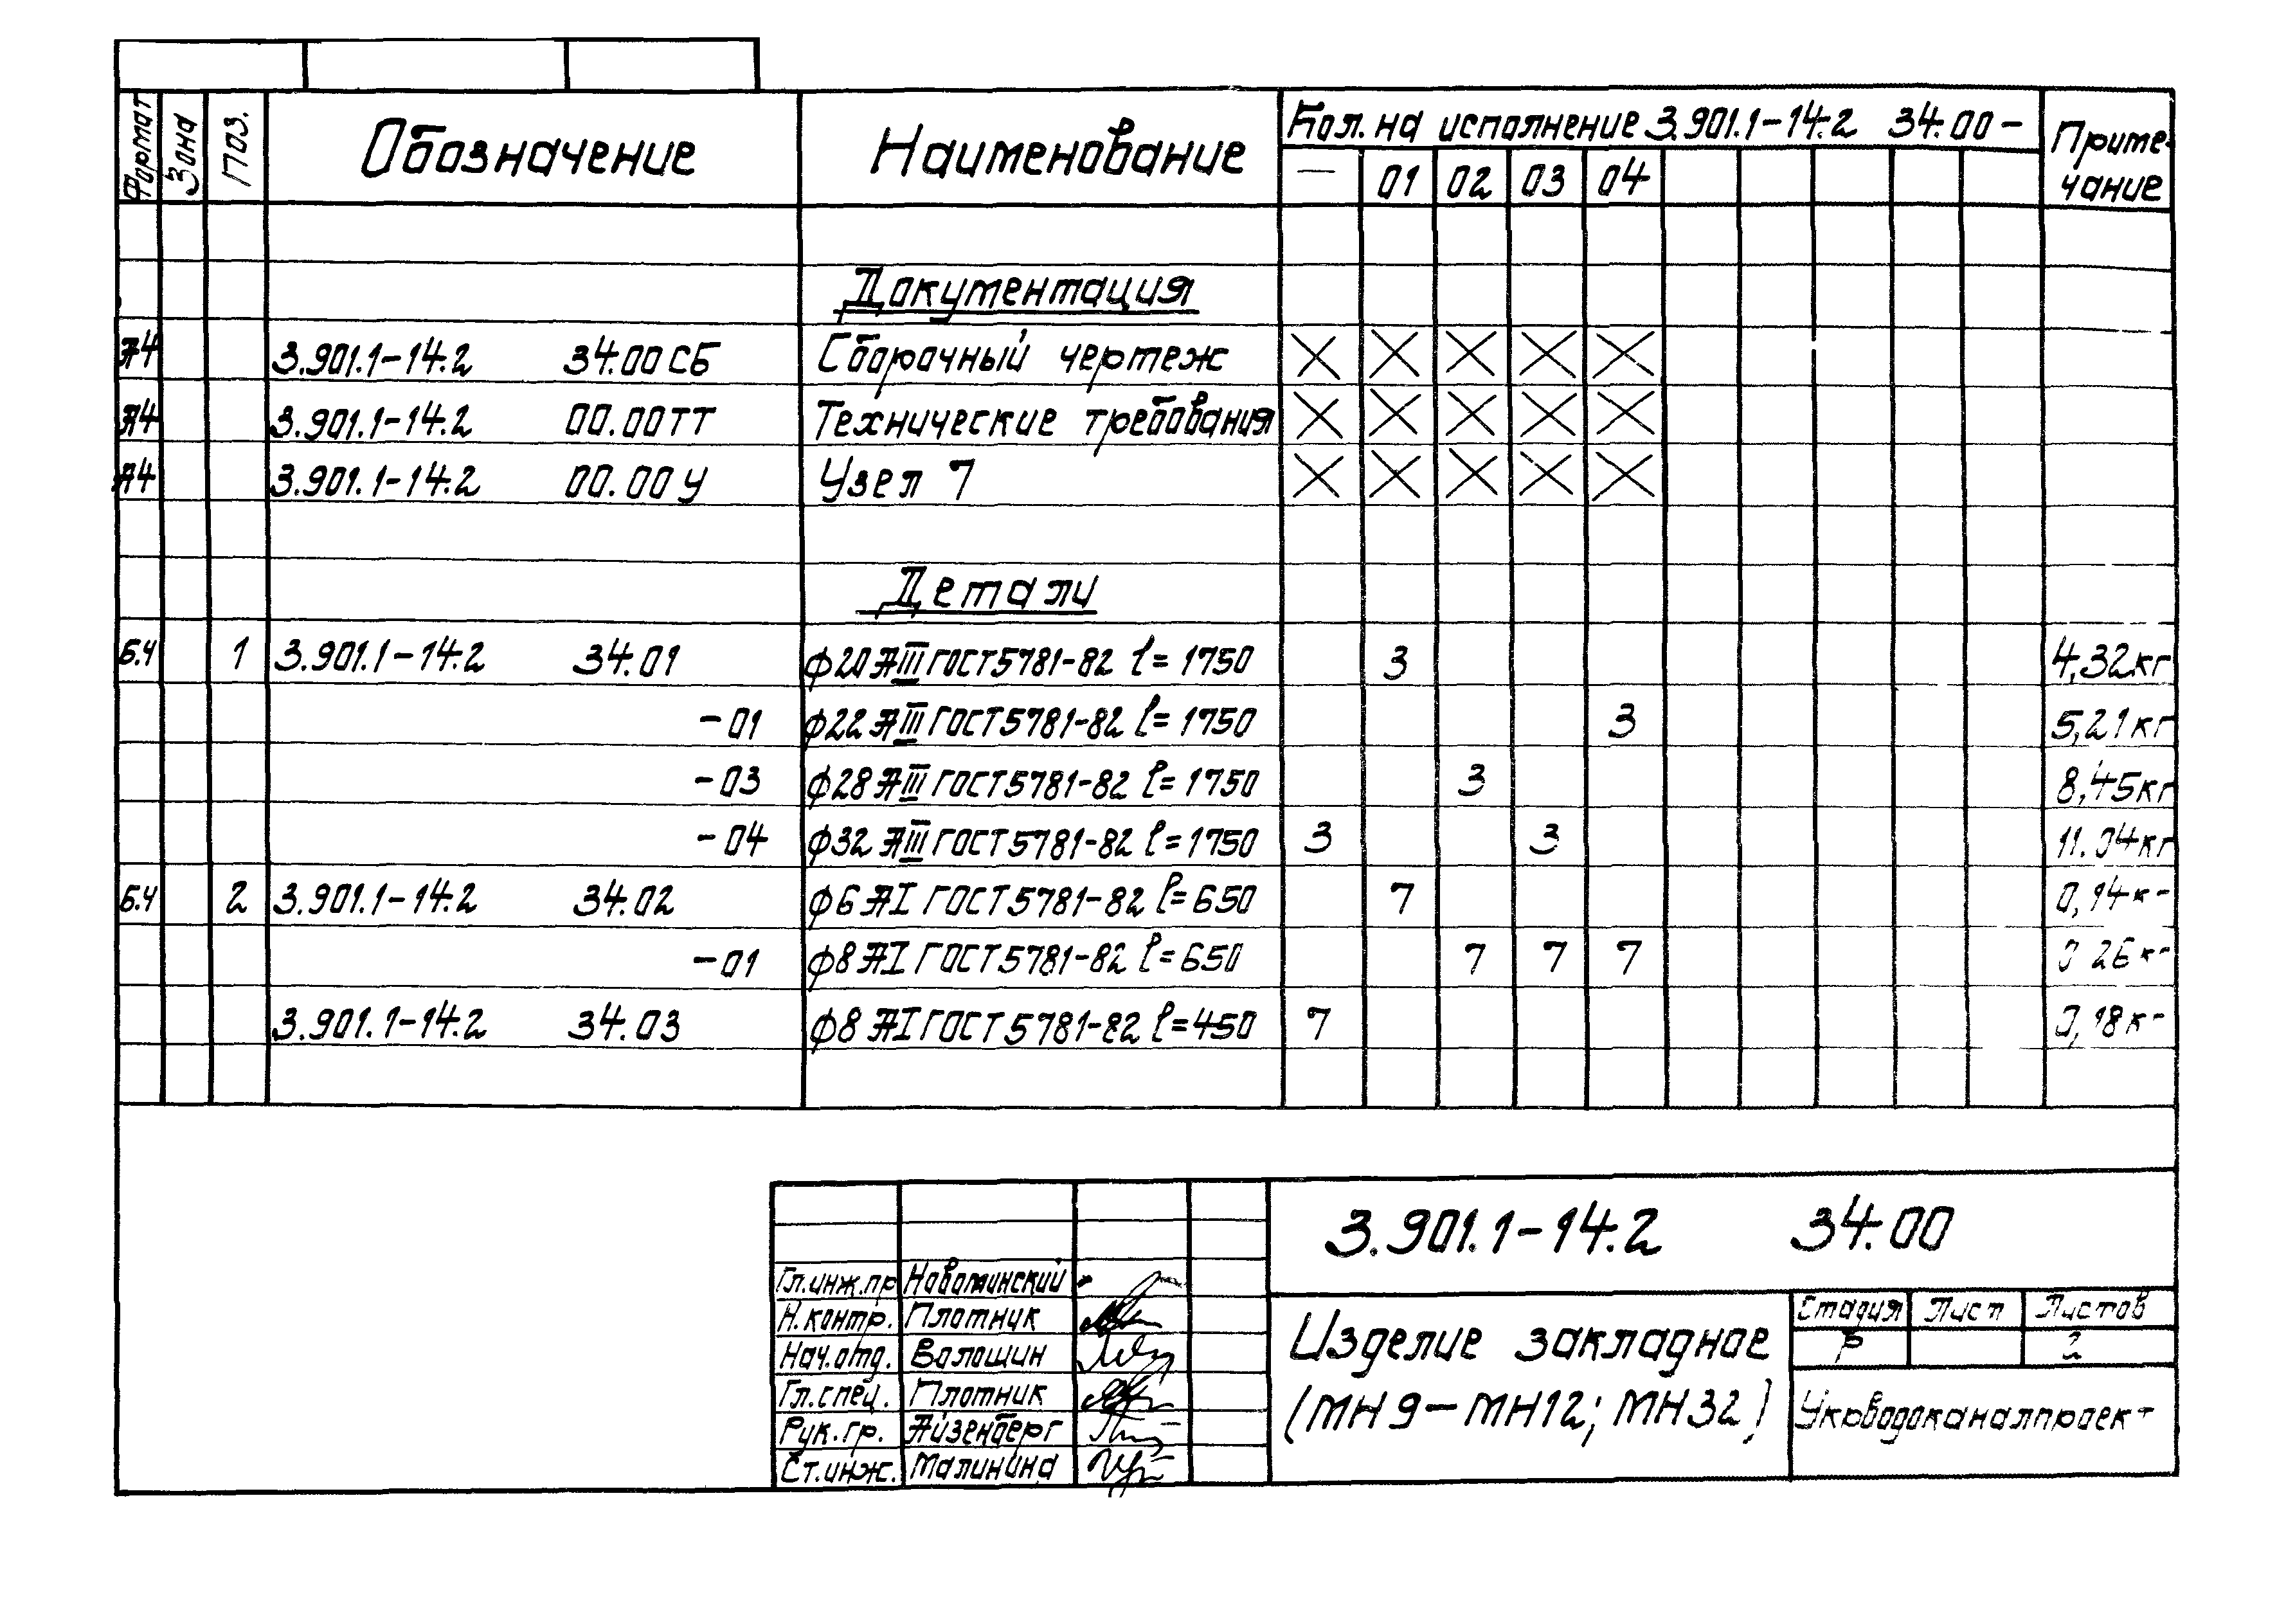 Формат Зона Поз. Обозначение Наименование Кол. на исполнение 3.901.1-14.2 34.00- Приме-
чание
— 01 02 03 04
Документация
А4 3.901.1-14.2 34.00 СБ Сборочный чертеж
А4 3.901.1-14.2 00.00 ТТ Технические требования
А4 3.901.1-14.2 00.00 У Узел 7
Детали
Б.Ч 1 3.901.1-14.2 34.01 ф20 АIII ГОСТ 5781-82 ℓ= 1750 3 4,32кг
-01 ф22 АIII ГОСТ 5781-82 ℓ= 1750 3 5,21кг
-03 ф28 АIII ГОСТ 5781-82 ℓ= 1750 3 8,45кг
-04 ф32 АIII ГОСТ 5781-82 ℓ= 1750 3 3 11.04кг
Б.Ч 2 3.901.1-14.2 34.02 ф6 АI ГОСТ 5781-82 ℓ= 650 7 0,14кг
-01 ф8 АI ГОСТ 5781-82 ℓ= 650 7 7 7 0 26кг
3.901.1-14.2 34.03 ф8 АI ГОСТ 5781-82 ℓ=450 7 0,18кг
3.901.1-14.2 34.00
Гл.инж.пр Новоминский
Н.контр. Плотник
Нач.отд. Волошин
Гл.спец. Плотник
Рук.гр. Айзенберг
Ст.инж. Малинина
Изделие закладное
(МН9-МН12; МН32)
Стадия Лист Листов
Р 2
Укрводоканалпроект